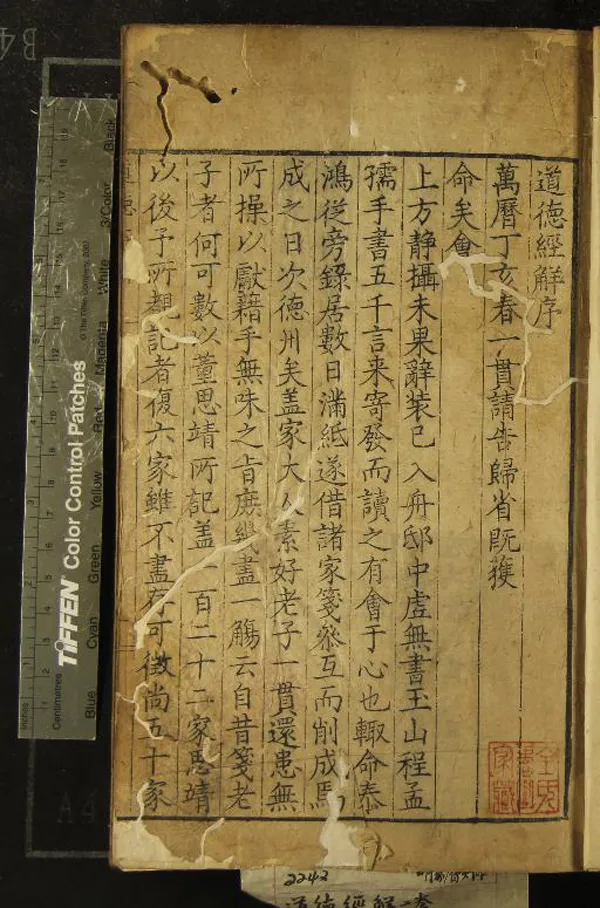 道德經解序
萬曆丁亥春一貫請告歸省既獲
命矣會
上方静攝未果辭装已入舟邸中虚無書玉山程孟
孺手書五千言来寄發而讀之有會于心也輙命泰
鴻従旁錄居數日滿紙遂借諸家箋叅互而削成焉
成之日次德州矣盖家大人素好老子一貫還患無
所操以獻藉手無味之旨庶幾盡一觴云自昔箋老
子者何可數以董思靖所記盖一百二十二家思靖
以後予所覩記者復六家雖不盡存可徴尚五十家
TIFFEN Color Control Patches
© The Tiffen Company, 2007
Inches
Centimetres
Blue
Cyan
Green
Yellow
Red
Magenta
White
3/Color
Black
2242
道德經解一套